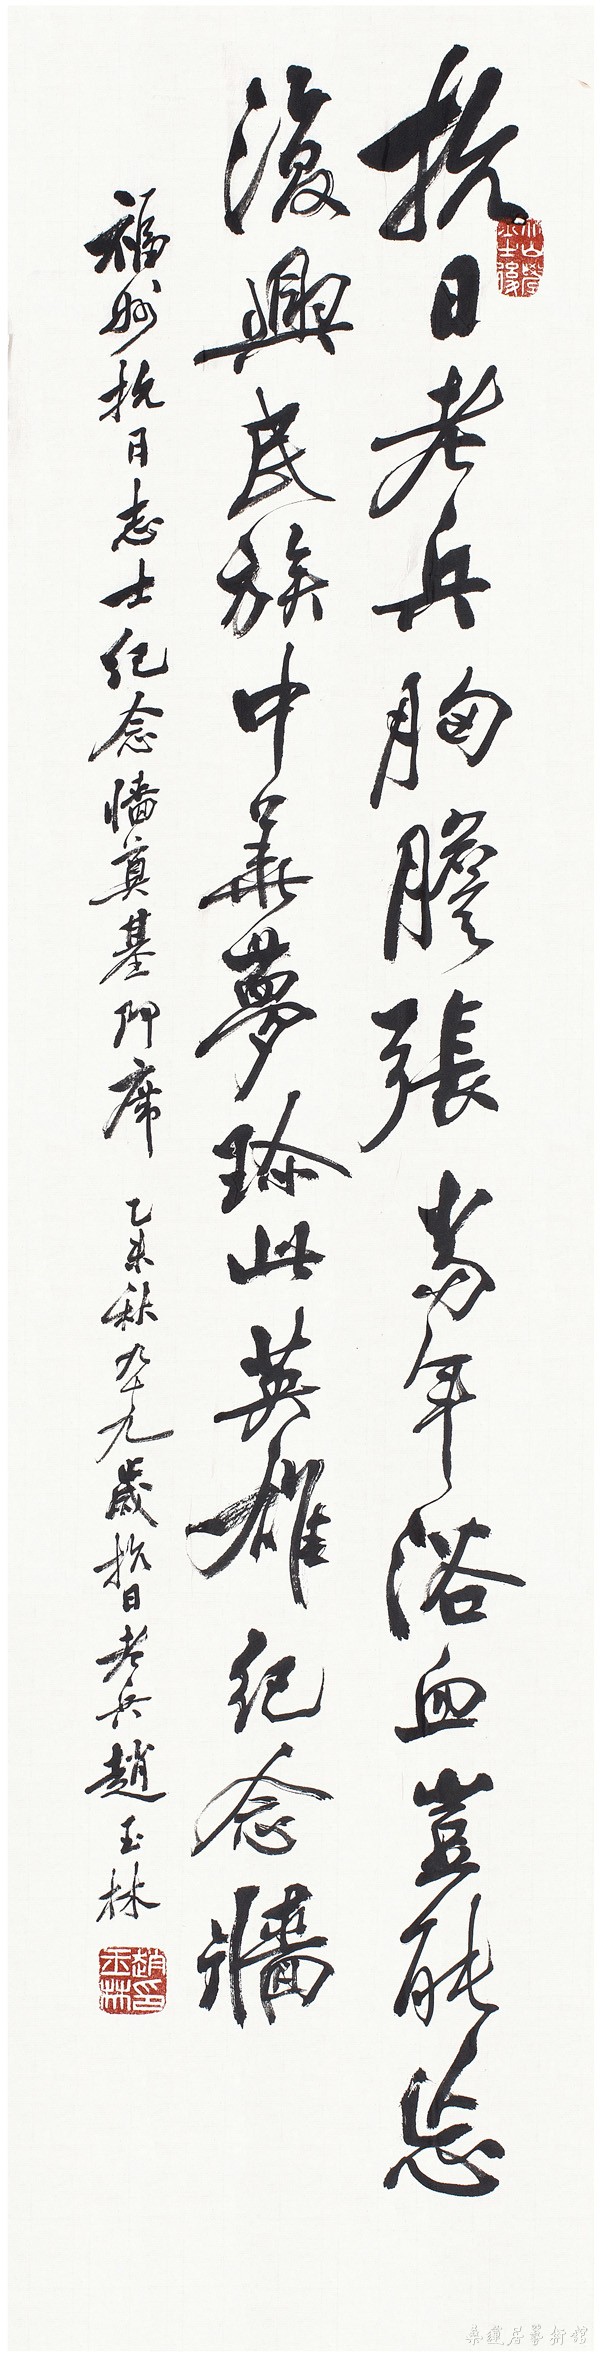 抗日老兵胸膽張當年浴血豈能忘
復興民族中華夢珍此英雄紀念牆
福州抗日志士紀念墻奠基即席 乙未秋九十九歲抗日老兵趙玉林
趙玉林印
桑蓮居藝術館